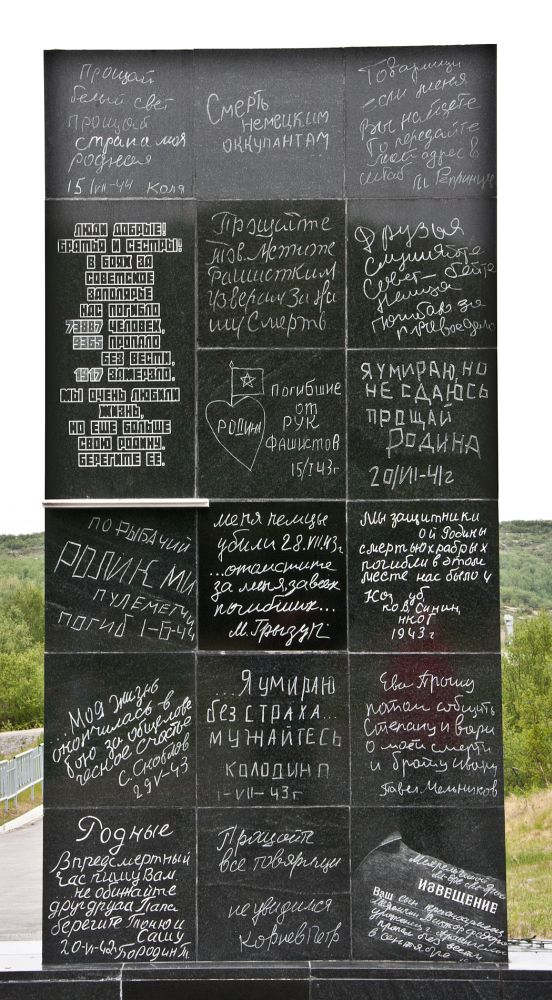 Прощай
белый свет
прощай
страна моя
родная
15/VII-44 Коля
Смерть
немецким
оккупантам
Товарищи
если меня
Вы найдете
то передайте
мой адрес в
штаб
ЛЮДИ ДОБРЫЕ!
БРАТЬЯ И СЕСТРЫ!
В БОЯХ ЗА
СОВЕТСКОЕ
ЗАПОЛЯРЬЕ
НАС ПОГИБЛО
73887 ЧЕЛОВЕК,
2365 ПРОПАЛО
БЕЗ ВЕСТИ,
1917 ЗАМЕРЗЛО.
МЫ ОЧЕНЬ ЛЮБИЛИ
ЖИЗНЬ,
НО ЕЩЕ БОЛЬШЕ
СВОЮ РОДИНУ.
БЕРЕГИТЕ ЕЕ.
Прощайте
тов. Мстите
Фашистким
Узверам За на
шу Смерть
Друзья
Слушайте
Совет- бейте
немца
погибаю за
правое дело
РОДИНА
Погибшие
от
РУК
ФАШИСТОВ
15/I 43г
Я УМИРАЮ, НО
НЕ СДАЮСЬ
ПРОЩАЙ
РОДИНА
20/VII-41г
ПО РЫБАЧИЙ
РОЛИК МИ
ПУЛЕМЕТЧИ
ПОГИБ 1-6-44
меня немцы
убили 28.VII.43г.
...отомстите
за меня, за всех
погибших...
М. Грызун
Мы защитники
ой Родины
смертью храбрых
погибли в этом
месте нас было 4
1943г
...Моя жизнь
окончилась в
бою за общелове
ческое счастье
29 V-43
...Я умираю
без страха...
мужайтесь
КОЛОДИНА
1-VII-43г.
потом собщить
Степану и
о моей смерти
и брату
Павел Мельников
Родные
В предсмертный
час пишу Вам.
не обижайте
друг друга Папа
берегите Женю и
Сашу
20-VI-42г Бородин
Прощайте
все товарищи
не увидился
Корнев Петр
ИЗВЕЩЕНИЕ
Ваш сын
пропал без вести
в сентябре